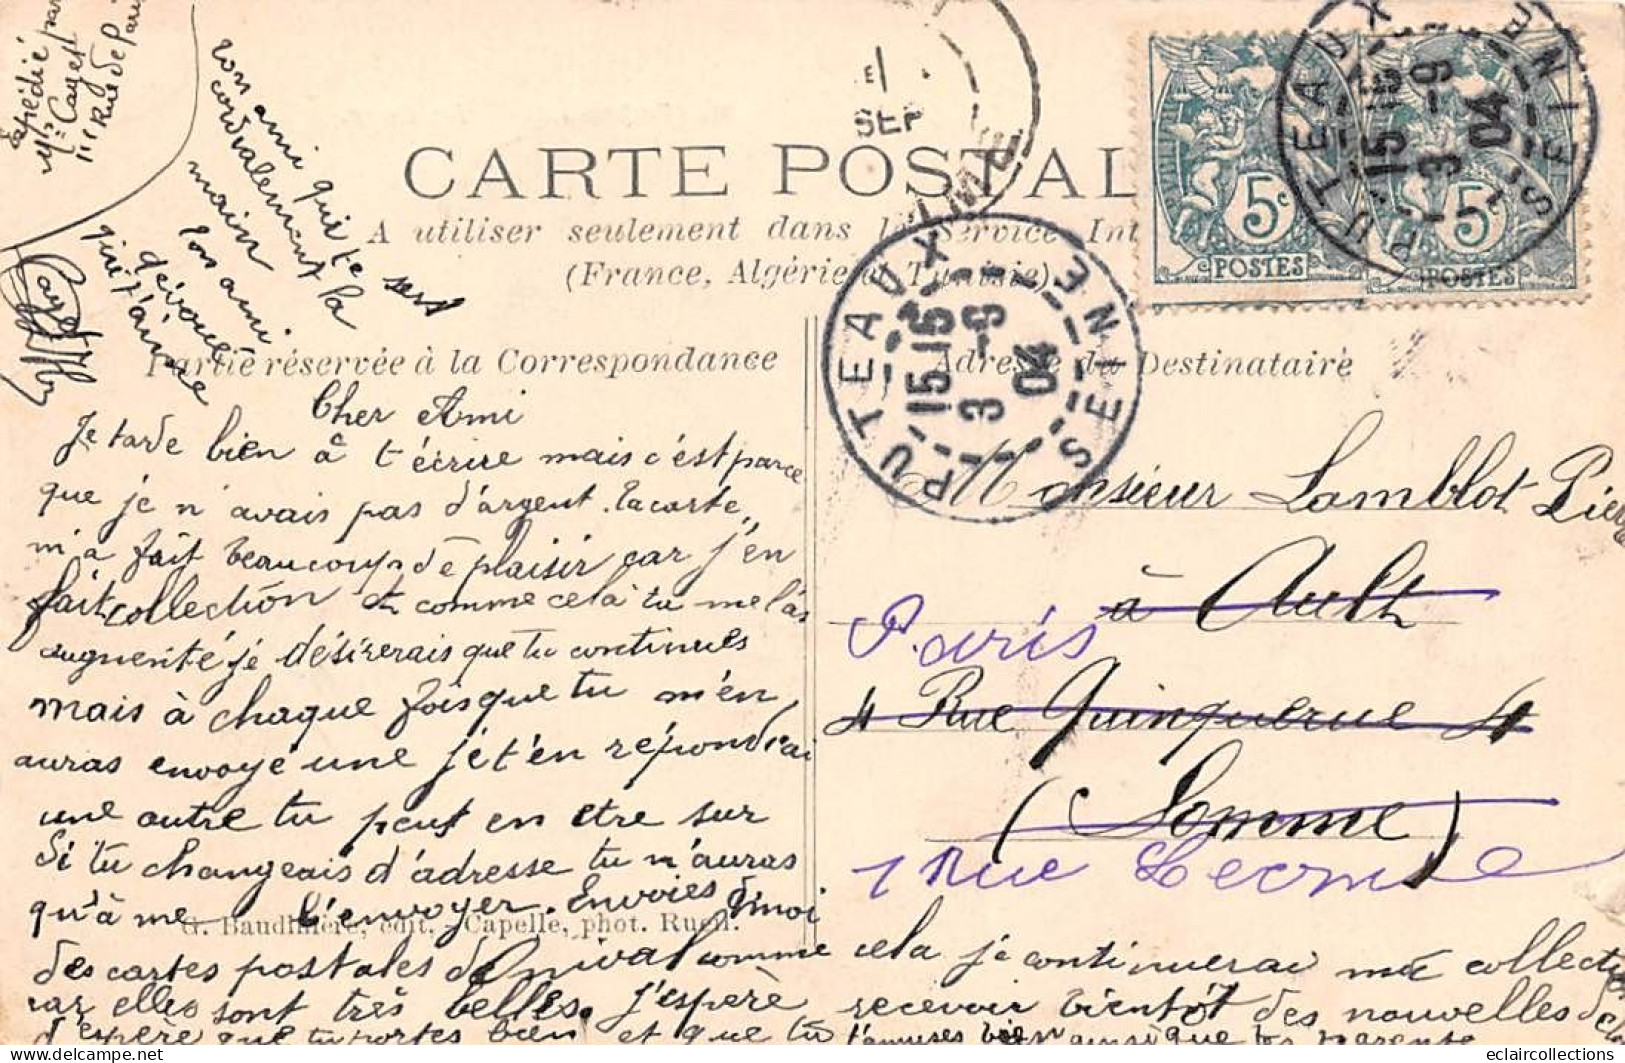 Expédié par
Cayet
11 Rue de Paris
CARTE POSTAL
A utiliser seulement dans le Service Int
(France, Algérie et Tunisie)
5c
POSTES
5c
POSTES
PUTEAUX
15 15
3 -9
04
SEINE
PUTEAUX
15 15
3 -9
04
SEINE
SEP
Partie réservée à la Correspondance
Adresse du Destinataire
Cher Ami
Je tarde bien à t'écrire mais c'est parce
que je n'avais pas d'argent. ta carte
m'a fait beaucoup de plaisir car j'en
fait collection et comme celà tu me l'as
augmenté je désirerais que tu continues
mais à chaque fois que tu m'en
auras envoyé une je t'en répondrai
une autre tu peut en etre sur
Si tu changeais d'adresse tu n'auras
qu'à me l'envoyer. Envoies moi
G. Baudinière, édit. - Capelle, phot. Rueil.
des cartes postales d'Onival comme
car elles sont très belles. J'espère
J'espère que tu portes bien et que tu
cela je continuerai ma collection
recevoir bientôt des nouvelles de
t'amuses bien ainsi que tes parents
ton ami qui te sert
cordialement la
main
ton ami
dévoué
qui t'aime
Cayet
Monsieur Lamblot Pierre
à Ault
Paris
4 Rue Quinquerue 4
(Somme)
1 Rue Lecourbe
eclaircollections